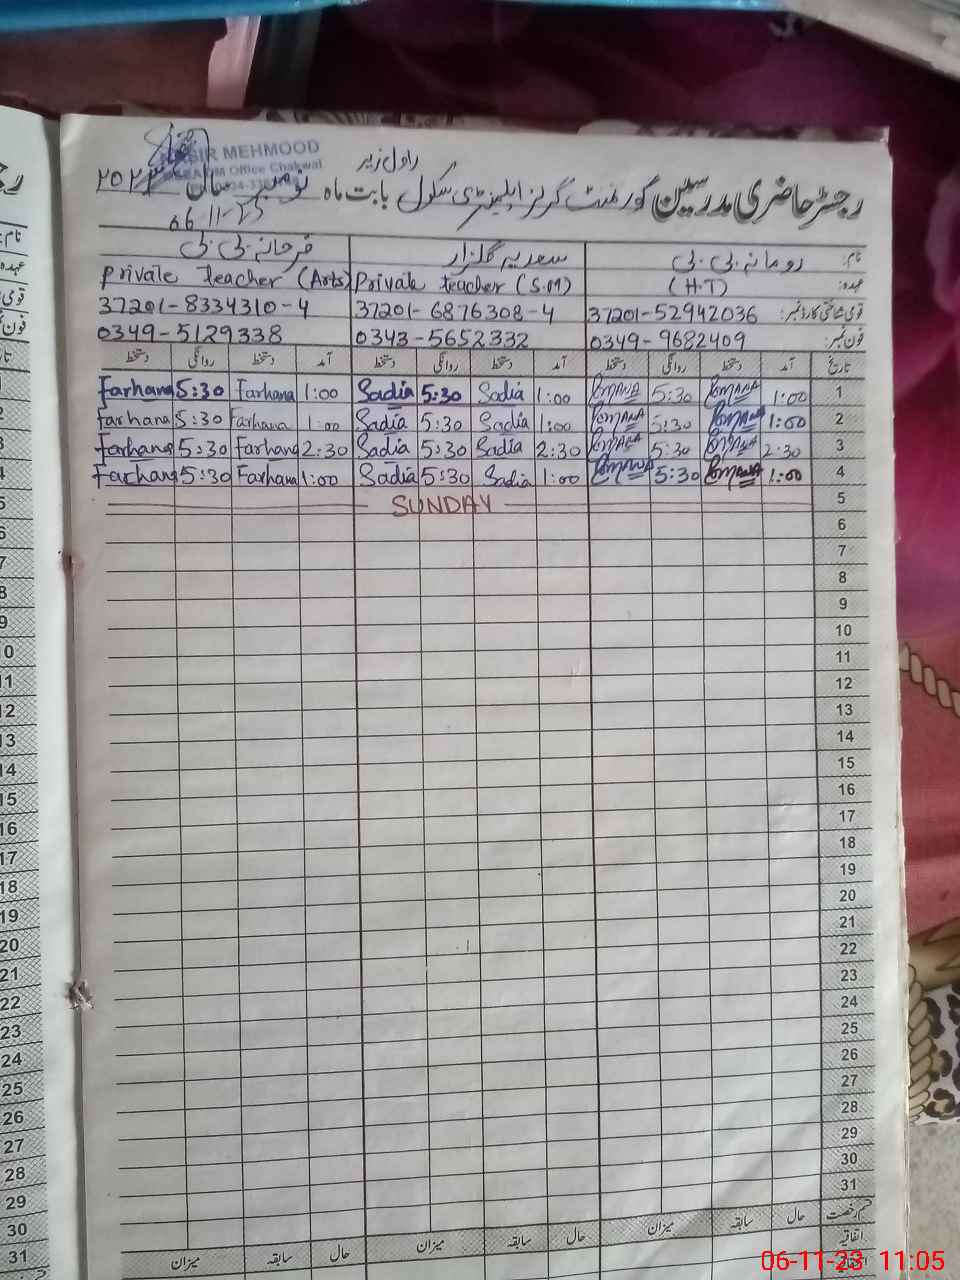 راول زیر
رجسٹر حاضری مدرسین گورنمنٹ گرلز ایلیمنٹری سکول بابت ماہ نومبر سال ۲۰۲۳
NASIR MEHMOOD
Office Chakwal
06-11-23
نام: رومانہ بی بی سعدیہ گلزار فرحانہ بی بی
عہدہ: (H.T) Private teacher (S.M) Private teacher (Arts)
قومی شناختی کارڈ نمبر: 37201-52942036 37201-6876308-4 37201-8334310-4
فون نمبر: 0349-9682409 0343-5652332 0349-5129338
تاریخ آمد دستخط روانگی دستخط آمد دستخط روانگی دستخط آمد دستخط روانگی دستخط
1 1:00 Romana 5:30 Romana 1:00 Sadia 5:30 Sadia 1:00 Farhana 5:30 Farhana
2 1:00 Romana 5:30 Romana 1:00 Sadia 5:30 Sadia 1:00 Farhana 5:30 Farhana
3 2:30 Romana 5:30 Romana 2:30 Sadia 5:30 Sadia 2:30 Farhana 5:30 Farhana
4 1:00 Romana 5:30 Romana 1:00 Sadia 5:30 Sadia 1:00 Farhana 5:30 Farhana
5 SUNDAY
6
7
8
9
10
11
12
13
14
15
16
17
18
19
20
21
22
23
24
25
26
27
28
29
30
31
قسم رخصت حال سابقہ میزان حال سابقہ میزان حال سابقہ میزان
اتفاقیہ
06-11-23 11:05